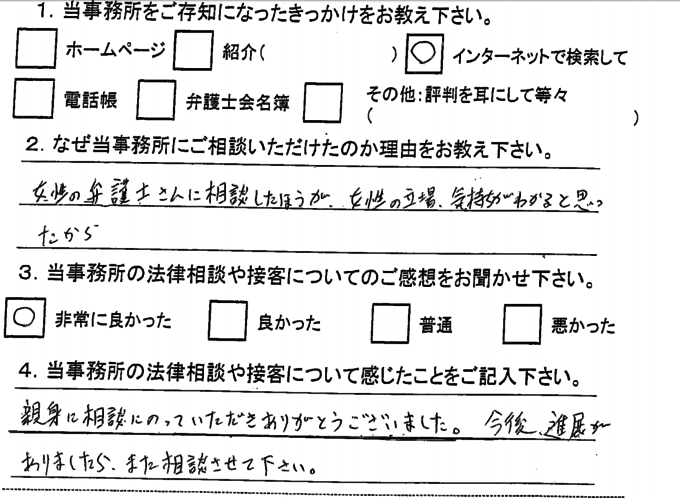 1. 当事務所をご存知になったきっかけをお教え下さい。
□ ホームページ □ 紹介( ) ○ インターネットで検索して
□ 電話帳 □ 弁護士会名簿 □ その他:評判を耳にして等々
( )
2. なぜ当事務所にご相談いただけたのか理由をお教え下さい。
女性の弁護士さんに相談したほうが、女性の立場、気持ちがわかると思っ
たから
3. 当事務所の法律相談や接客についてのご感想をお聞かせ下さい。
○ 非常に良かった □ 良かった □ 普通 □ 悪かった
4. 当事務所の法律相談や接客について感じたことをご記入下さい。
親身に相談にのっていただきありがとうございました。 今後、進展が
ありましたら、また相談させて下さい。